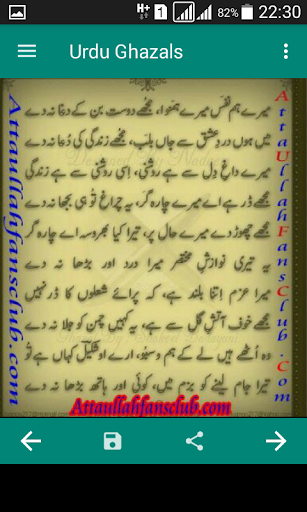 H+ 1 82% 22:30
Urdu Ghazals
میرے ہم نفس میرے ہمنوا، مجھے دوست بن کے دغا نہ دے
میں ہوں دردِ عشق سے جاں بلب، مجھے زندگی کی دُعا نہ دے
میرے داغِ دل سے ہے روشنی، اِسی روشنی سے ہے زندگی
مجھے ڈر ہے اے میرے چارہ گر، یہ چراغ تُو ہی بجھا نہ دے
مجھے چھوڑ دے میرے حال پر، تیرا کیا بھروسہ اے چارہ گر
یہ تیری نوازشِ مختصر میرا درد اور بڑھا نہ دے
میرا عزم اِتنا بلند ہے، کہ پرائے شعلوں کا ڈر نہیں
مجھے خوف آتشِ گُل سے ہے، یہ کہیں چمن کو جلا نہ دے
وہ اُٹھے ہیں لے کے ہم و سبو، ارے او شکیل کہاں ہے تُو
تیرا جام لینے کو بزم میں، کوئی اور ہاتھ بڑھا نہ دے
Attaullahfansclub.com
AttaUllahFansClub.Com
Attaullahfansclub.com